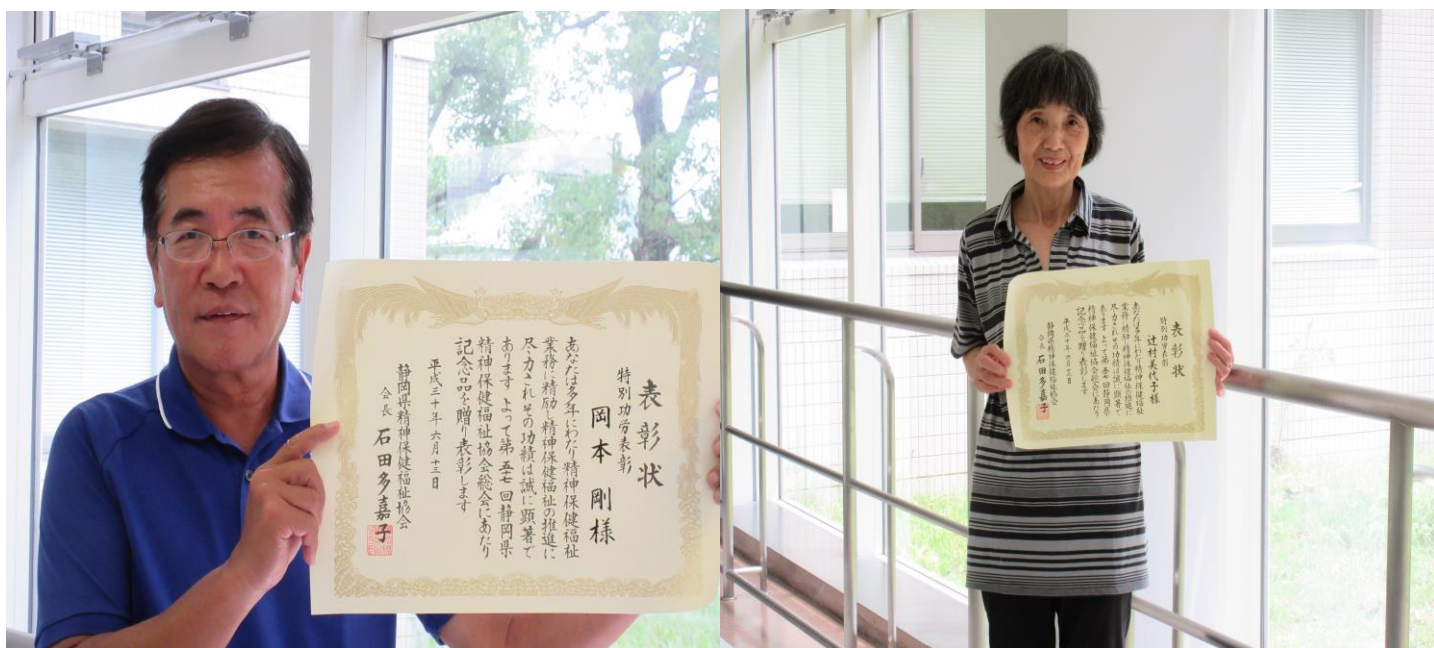 表彰状
特別功労表彰
岡本 剛様
あなたは多年にわたり精神保健福祉
業務に精励し精神保健福祉の推進に
尽力されその功績は誠に顕著で
あります よって第五十七回静岡県
精神保健福祉協会総会にあたり
記念品を贈り表彰します
平成三十年六月十三日
静岡県精神保健福祉協会
会長 石田多嘉子
表彰状
特別功労表彰
辻村美代子様
あなたは多年にわたり精神保健福祉
業務に精励し精神保健福祉の推進に
尽力されその功績は誠に顕著で
あります よって第五十七回静岡県
精神保健福祉協会総会にあたり
記念品を贈り表彰します
平成三十年六月十三日
静岡県精神保健福祉協会
会長 石田多嘉子